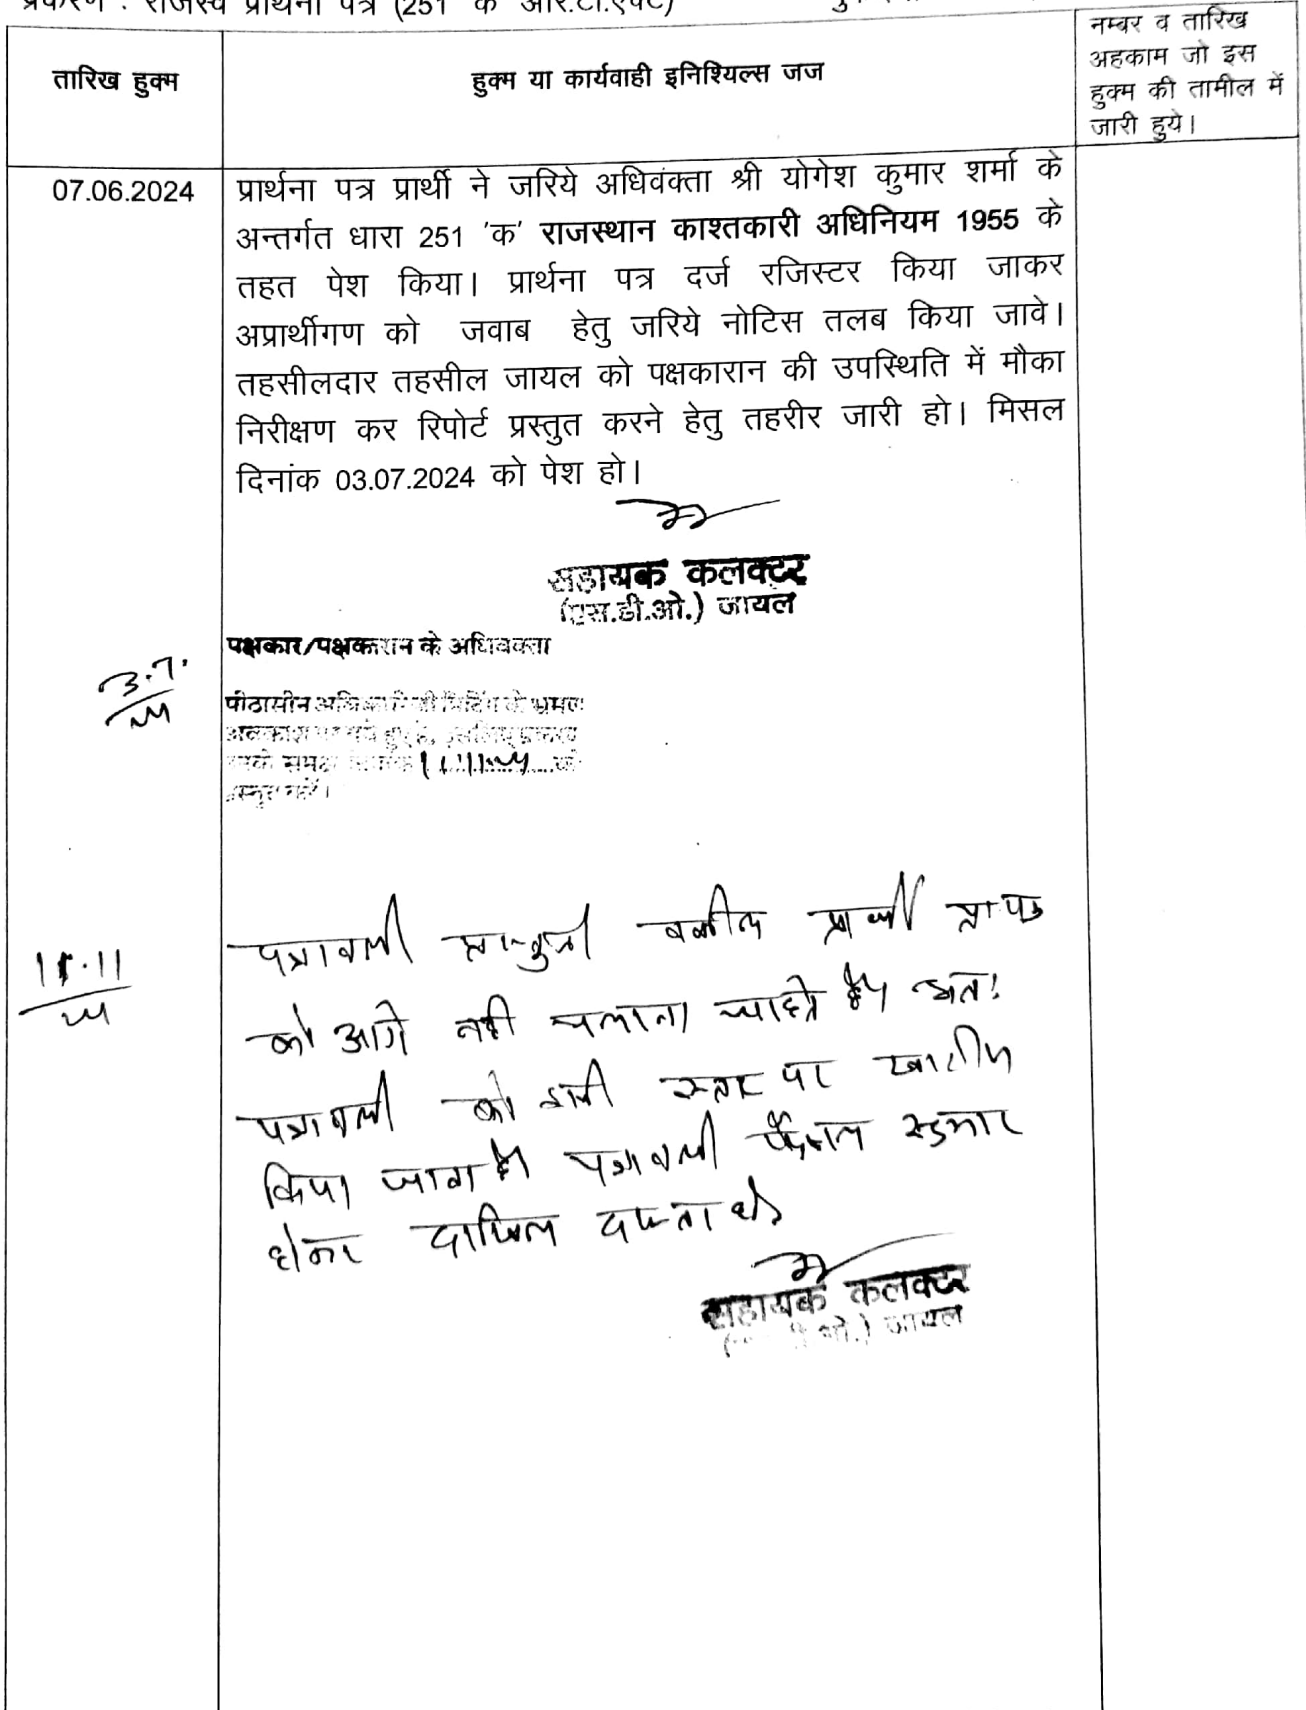 प्रकरण : राजस्व प्रार्थना पत्र (251 'क' आर.टी.एक्ट)
तारिख हुक्म
हुक्म या कार्यवाही इनिश्यिल्स जज
नम्बर व तारिख
अहकाम जो इस
हुक्म की तामील में
जारी हुये।
07.06.2024
प्रार्थना पत्र प्रार्थी ने जरिये अधिवक्ता श्री योगेश कुमार शर्मा के
अन्तर्गत धारा 251 'क' राजस्थान काश्तकारी अधिनियम 1955 के
तहत पेश किया। प्रार्थना पत्र दर्ज रजिस्टर किया जाकर
अप्रार्थीगण को जवाब हेतु जरिये नोटिस तलब किया जावे।
तहसीलदार तहसील जायल को पक्षकारान की उपस्थिति में मौका
निरीक्षण कर रिपोर्ट प्रस्तुत करने हेतु तहरीर जारी हो। मिसल
दिनांक 03.07.2024 को पेश हो।
सहायक कलक्टर
(एस.डी.ओ.) जायल
पक्षकार/पक्षकारान के अधिवक्ता
3.7.
24
पीठासीन
समक्ष 11.11.24 को
11.11
24
पत्रावली वकील प्रार्थी
को आगे नही चलाना चाहते है अतः
पत्रावली को इसी स्तर पर खारीज
किया जाता है पत्रावली फैसल शुमार
होकर दाखिल दफ्तर हो
सहायक कलक्टर
जायल